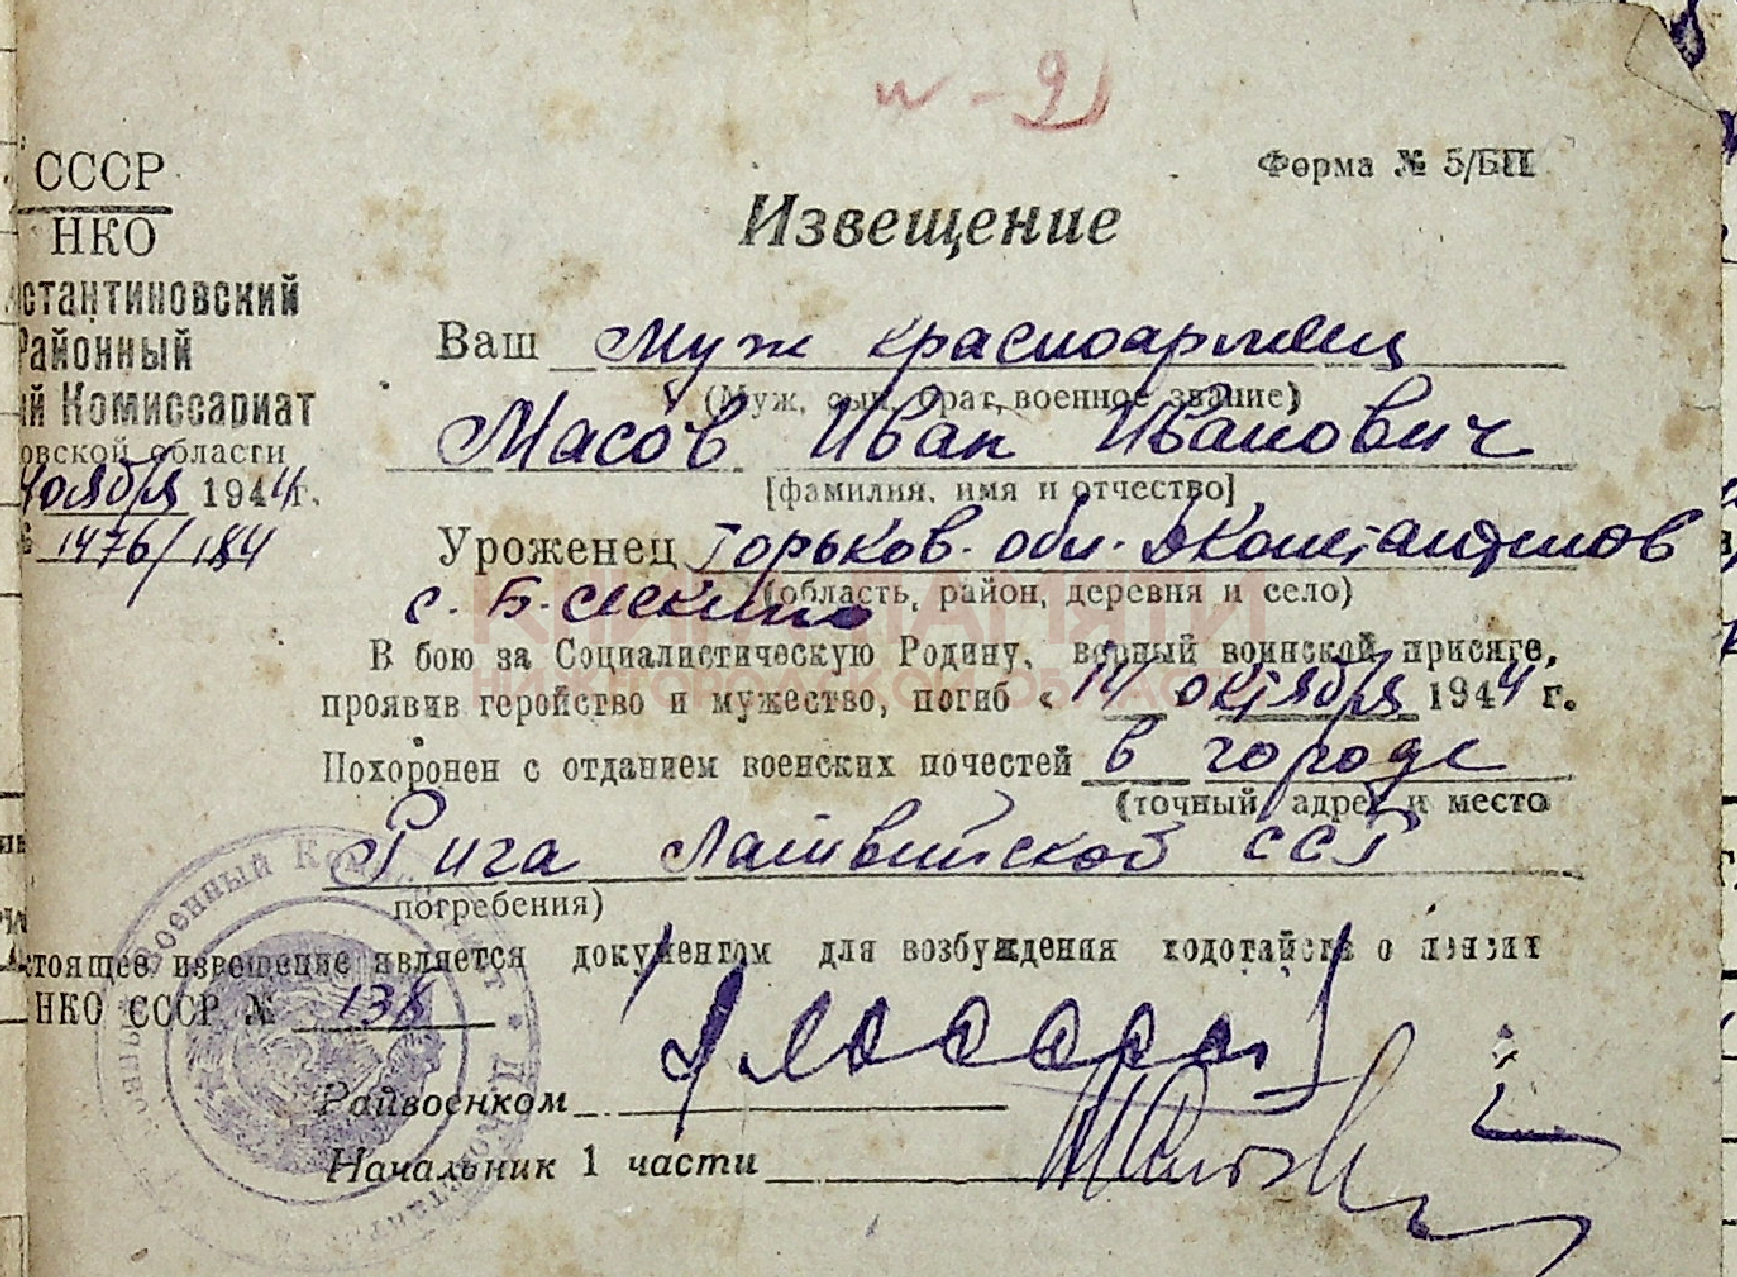 и - 9
Форма № 5/БП
СССР
НКО
Извещение
стантиновский
Районный
й Комиссариат
овской области
Ноября 1944 г.
1476/184
Ваш муж красноармеец
(Муж, сын, брат, военное звание)
Масов Иван Иванович
[фамилия, имя и отчество]
Уроженец Горьков. обл. Дконстантинов
(область, район, деревня и село)
с. Б-Сескино
КНИГА ПАМЯТИ
НИЖЕГОРОДСКОЙ ОБЛАСТИ
В бою за Социалистическую Родину, верный воинской присяге,
проявив геройство и мужество, погиб « 14 октября 1944 г.
Похоронен с отданием военских почестей в городе
(точный адрес и место
Рига Латвийской ССР
погребения)
стоящее извещение является документом для возбуждения ходотайств о
НКО СССР № 138
Райвоенком
Начальник 1 части